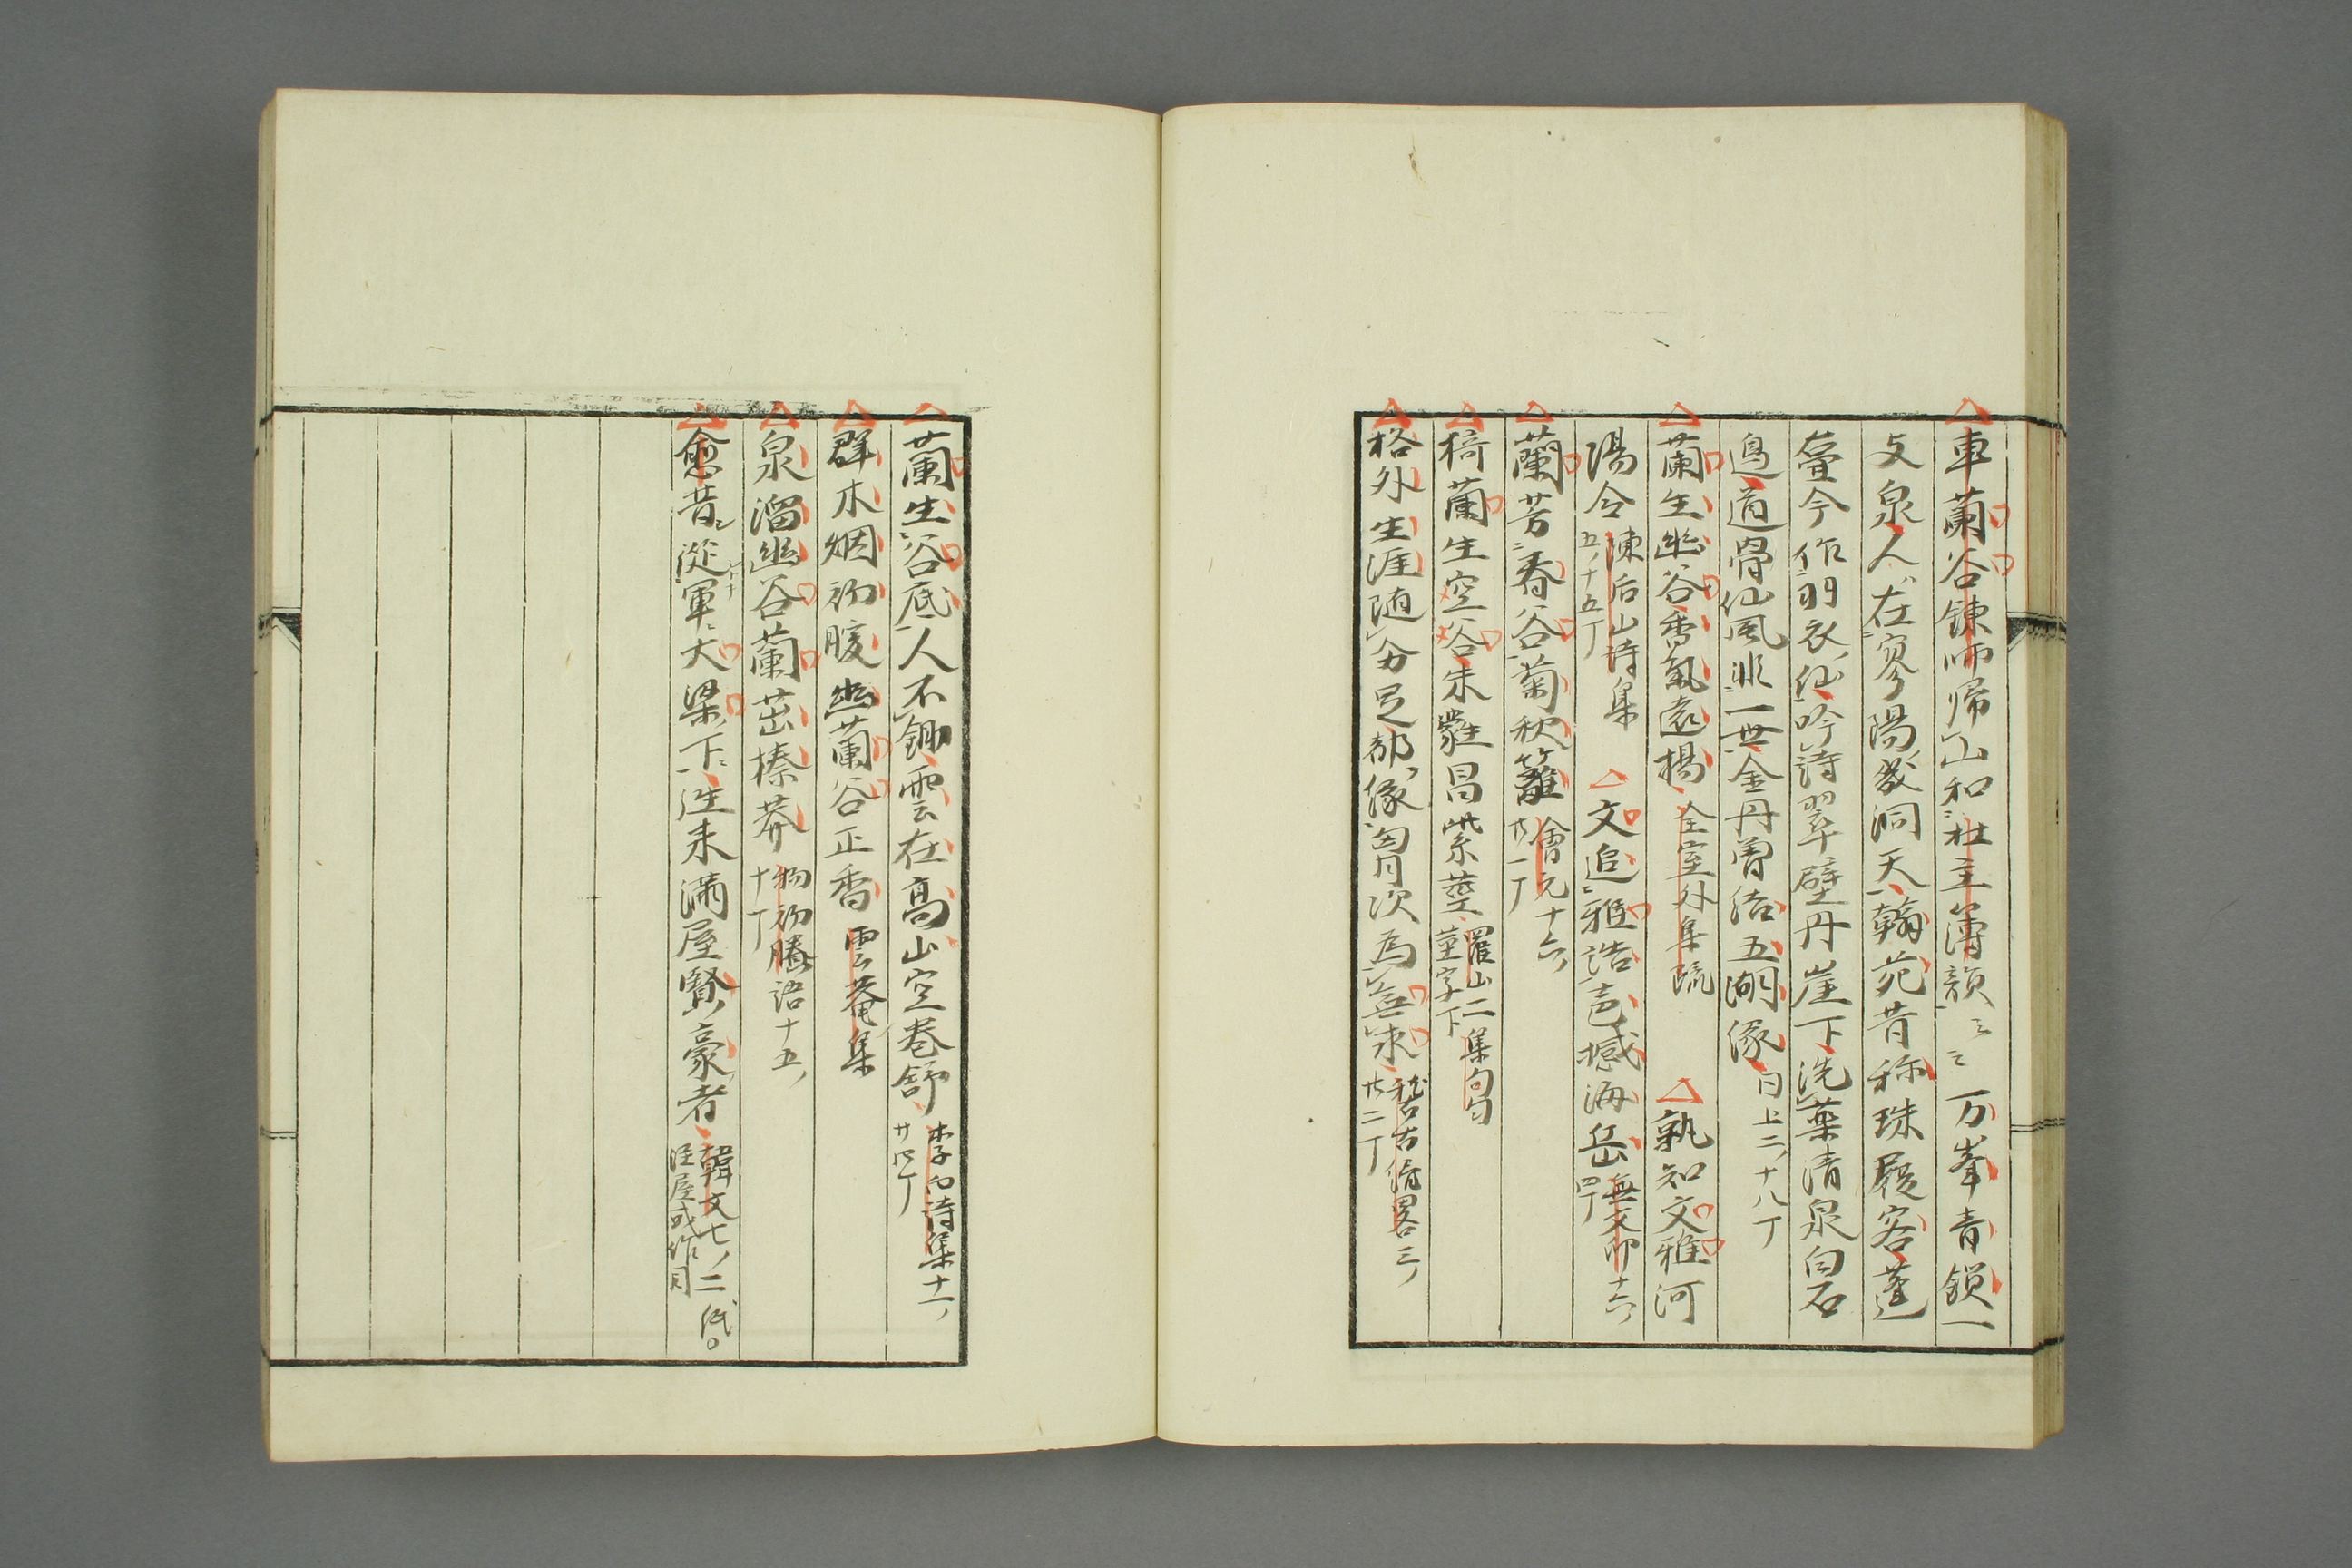 車蘭谷錬師帰山和杜主簿韻云云万峯青鎖一
文泉人在寥陽第洞天翰苑昔称珠履客蓬
莱今作羽衣仙吟詩翠壁丹崖下洗薬清泉白石
邉道骨仙風非一世金丹曽結五湖縁
同上二、十八丁
蘭生幽谷香氣遠揚
全室外集疏
孰知文雅河
陽令
陳后山詩集
五、十五丁
文追雅誥意撼海岳
無文印十六、
四丁
蘭芳春谷菊秋籬
會元十六、
廿一丁
猗蘭生空谷朱蕤昌紫莖
羅山二集
莖字下
格外生涯随分足都縁胷次為無求
稽古畧三、
廿二丁
蘭生谷底人不鋤雲在高山空巻舒
李白詩集十一、
廿四丁
群木烟初暖幽蘭谷正香
雲菴集
泉溜幽谷蘭茁榛莽
初勝語十五、
十丁
愈昔従軍大梁下往来満屋賢豪者
韓文七、二
注屋或作目